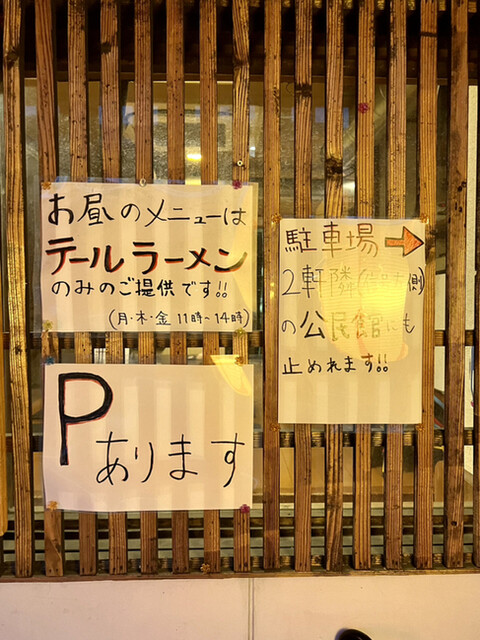 お昼のメニューは
テールラーメン
のみのご提供です!!
(月・木・金 11時~14時)
P
あります
駐車場→
2軒隣(側)
の公民館にも
止めれます!!